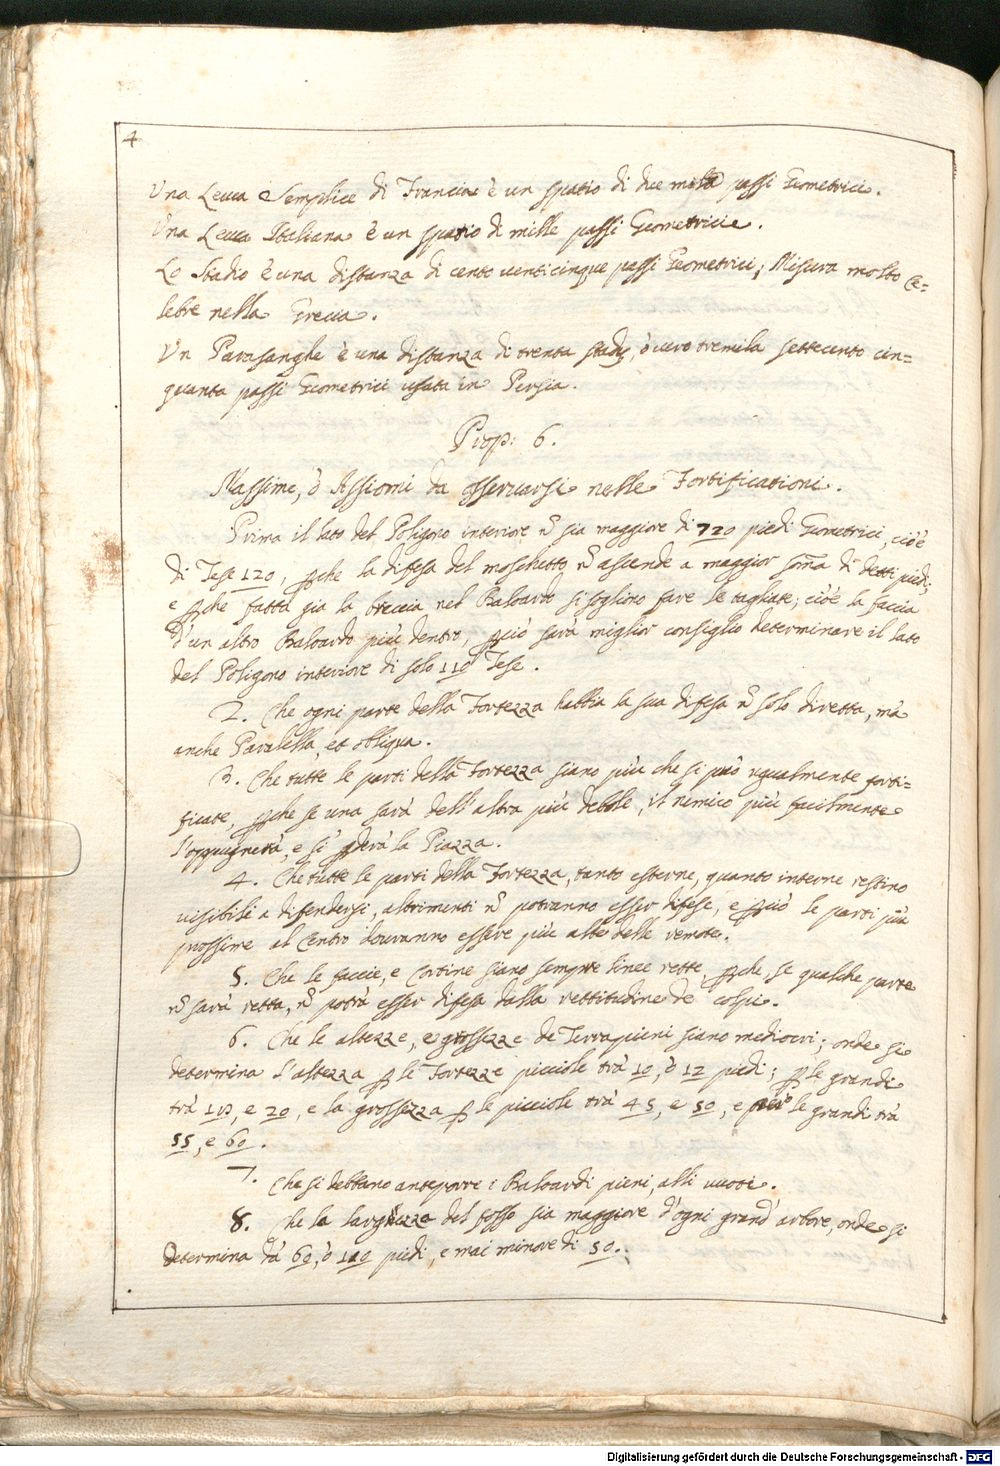 4
Una Leuca Semplice di Francia è un spatio di due mila passi Geometrici.
Una Leuca Italiana è un spatio di mille passi Geometrici.
Lo Stadio è una distanza di cento venticinque passi Geometrici; Misura molto ce-
lebre nella Grecia.
Un Parasanghe è una distanza di trenta stadij, ò vero tremila settecento cin=
quanta passi Geometrici usata in Persia.
Prop: 6.
Massime, ò Assiomi da osservarsi nelle Fortificationi.
Prima il lato del Poligono interiore nō sia maggiore di 720 piedi Geometrici, cioè
di Tese 120, ꝑche la difesa del moschetto nō ascende a maggior soma di detti piedi;
e ꝑche fatta gia la breccia nel Baloardo si sogliono fare le tagliate; cioè la faccia
d'un altro Baloardo più dentro, ꝑciò sarà miglior consiglio determinare il lato
del Poligono interiore di solo 110 Tese.
2. Che ogni parte della Fortezza habbia la sua difesa nō solo diretta, mà
anche Paralella, et obliqua.
3. Che tutte le parti della Fortezza siano più che si può ugualmente forti=
ficate, ꝑche se una sarà dell'altra più debole, il nemico più facilmente
l'oppugnerà, e si ꝑderà la Piazza.
4. Che tutte le parti della Fortezza, tanto esterne, quanto interne restino
visibili a difendersi, altrimenti nō potranno esser difese, e ꝑciò le parti più
prossime al Centro douranno essere più alte delle remote.
5. Che le faccie, e Cortine siano sempre linee rette, ꝑche, se qualche parte
nō sarà retta, nō potrà esser difesa dalla rettitudine de' colpi.
6. Che le altezze, e grossezze de Terrapieni siano mediocri; onde si
determina l'altezza ꝑ le Fortezze picciole trà 10, ò 12 piedi; ꝑ le grandi
trà e 20, e la grossezza ꝑ le picciole trà 45, e 50, e le grandi trà
55, e 60.
7. Che si debbano anteporre i Baloardi pieni, alli vuoti.
8. Che la larghezza del fosso sia maggiore d'ogni grand' arbore, onde si
determina dà 60, ò 100 piedi, e mai minore di 50.
Digitalisierung gefördert durch die Deutsche Forschungsgemeinschaft - DFG